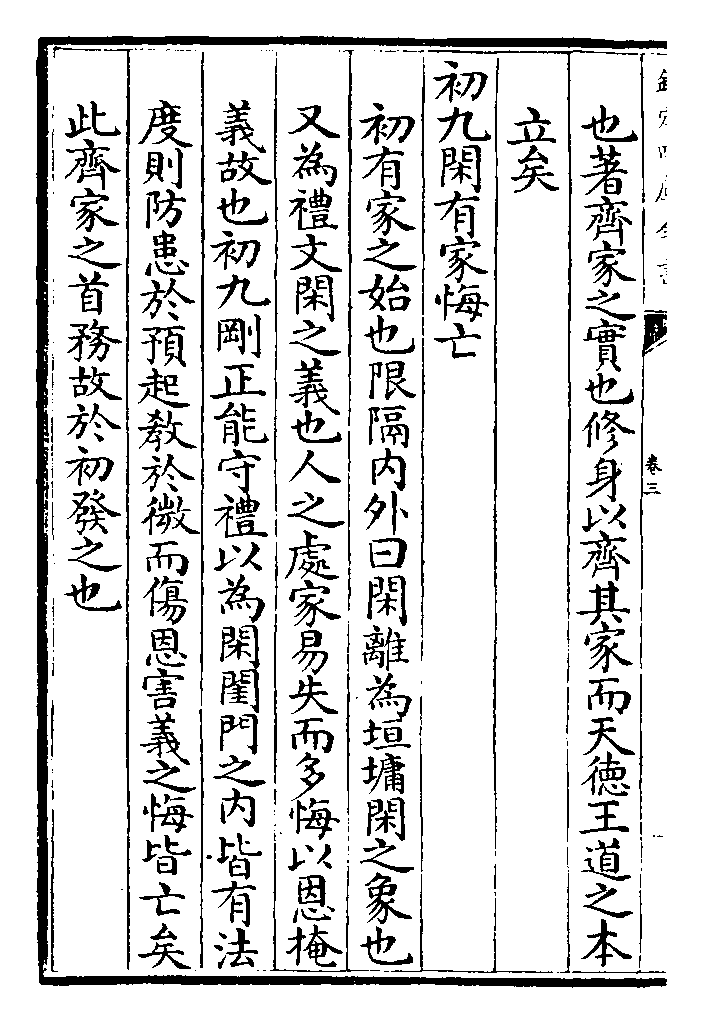 欽定四庫全書
卷三
也著齊家之實也修身以齊其家而天德王道之本
立矣
初九閑有家悔亡
初有家之始也限隔内外曰閑離為垣墉閑之象也
又為禮文閑之義也人之處家易失而多悔以恩掩
義故也初九剛正能守禮以為閑閨門之内皆有法
度則防患於預起教於微而傷恩害義之悔皆亡矣
此齊家之首務故於初發之也